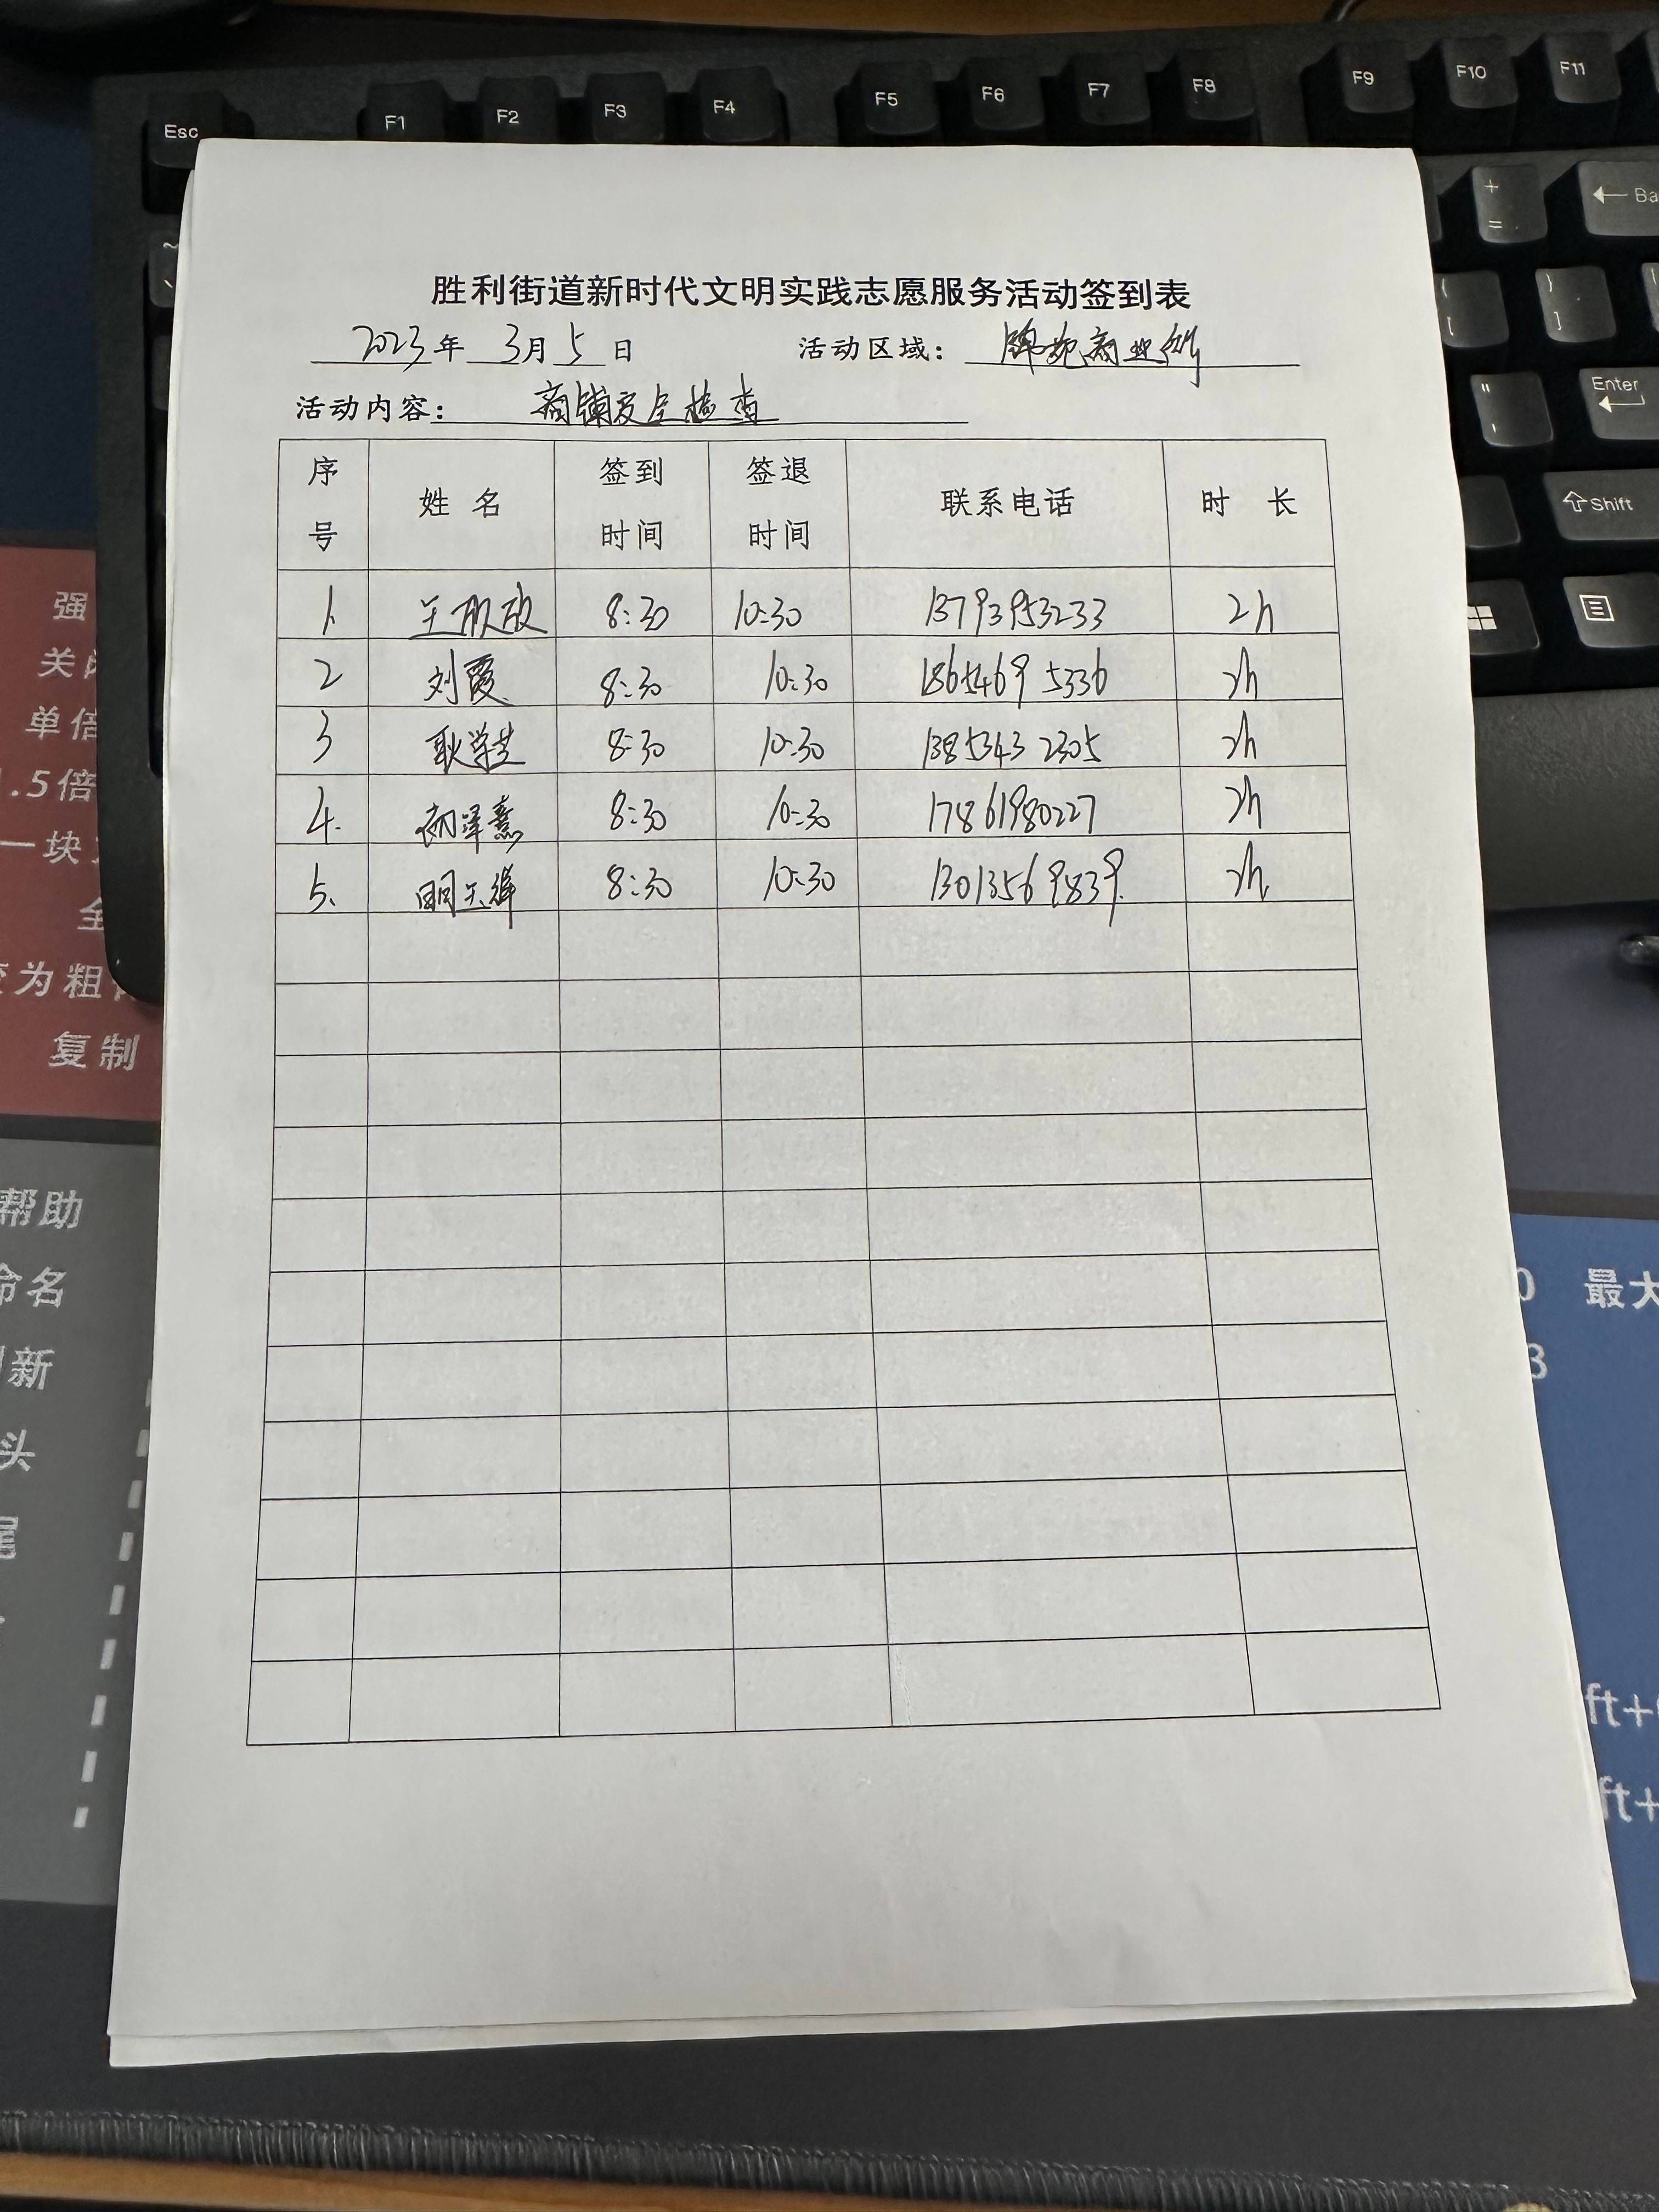 Esc F1 F2 F3 F4 F5 F6 F7 F8 F9 F10 F11
+ =
← Ba
~
{ [
} ]
"
'
Enter
Shift
胜利街道新时代文明实践志愿服务活动签到表
2023年 3月5日 活动区域: 锦苑商业街
活动内容: 商铺安全检查
序号 姓名 签到时间 签退时间 联系电话 时长
1. 8:30 10:30 13793953233 2h
2 刘霞 8:30 10:30 18654695336 2h
3 耿学芝 8:30 10:30 13853432305 2h
4. 8:30 10:30 17861980227 2h
5. 8:30 10:30 13013569839. 2h
强
关闭
单倍
.5倍
一块
全
变为粗体
复制
帮助
命名
新
头
尾
0 最大
3
ft+
ft+